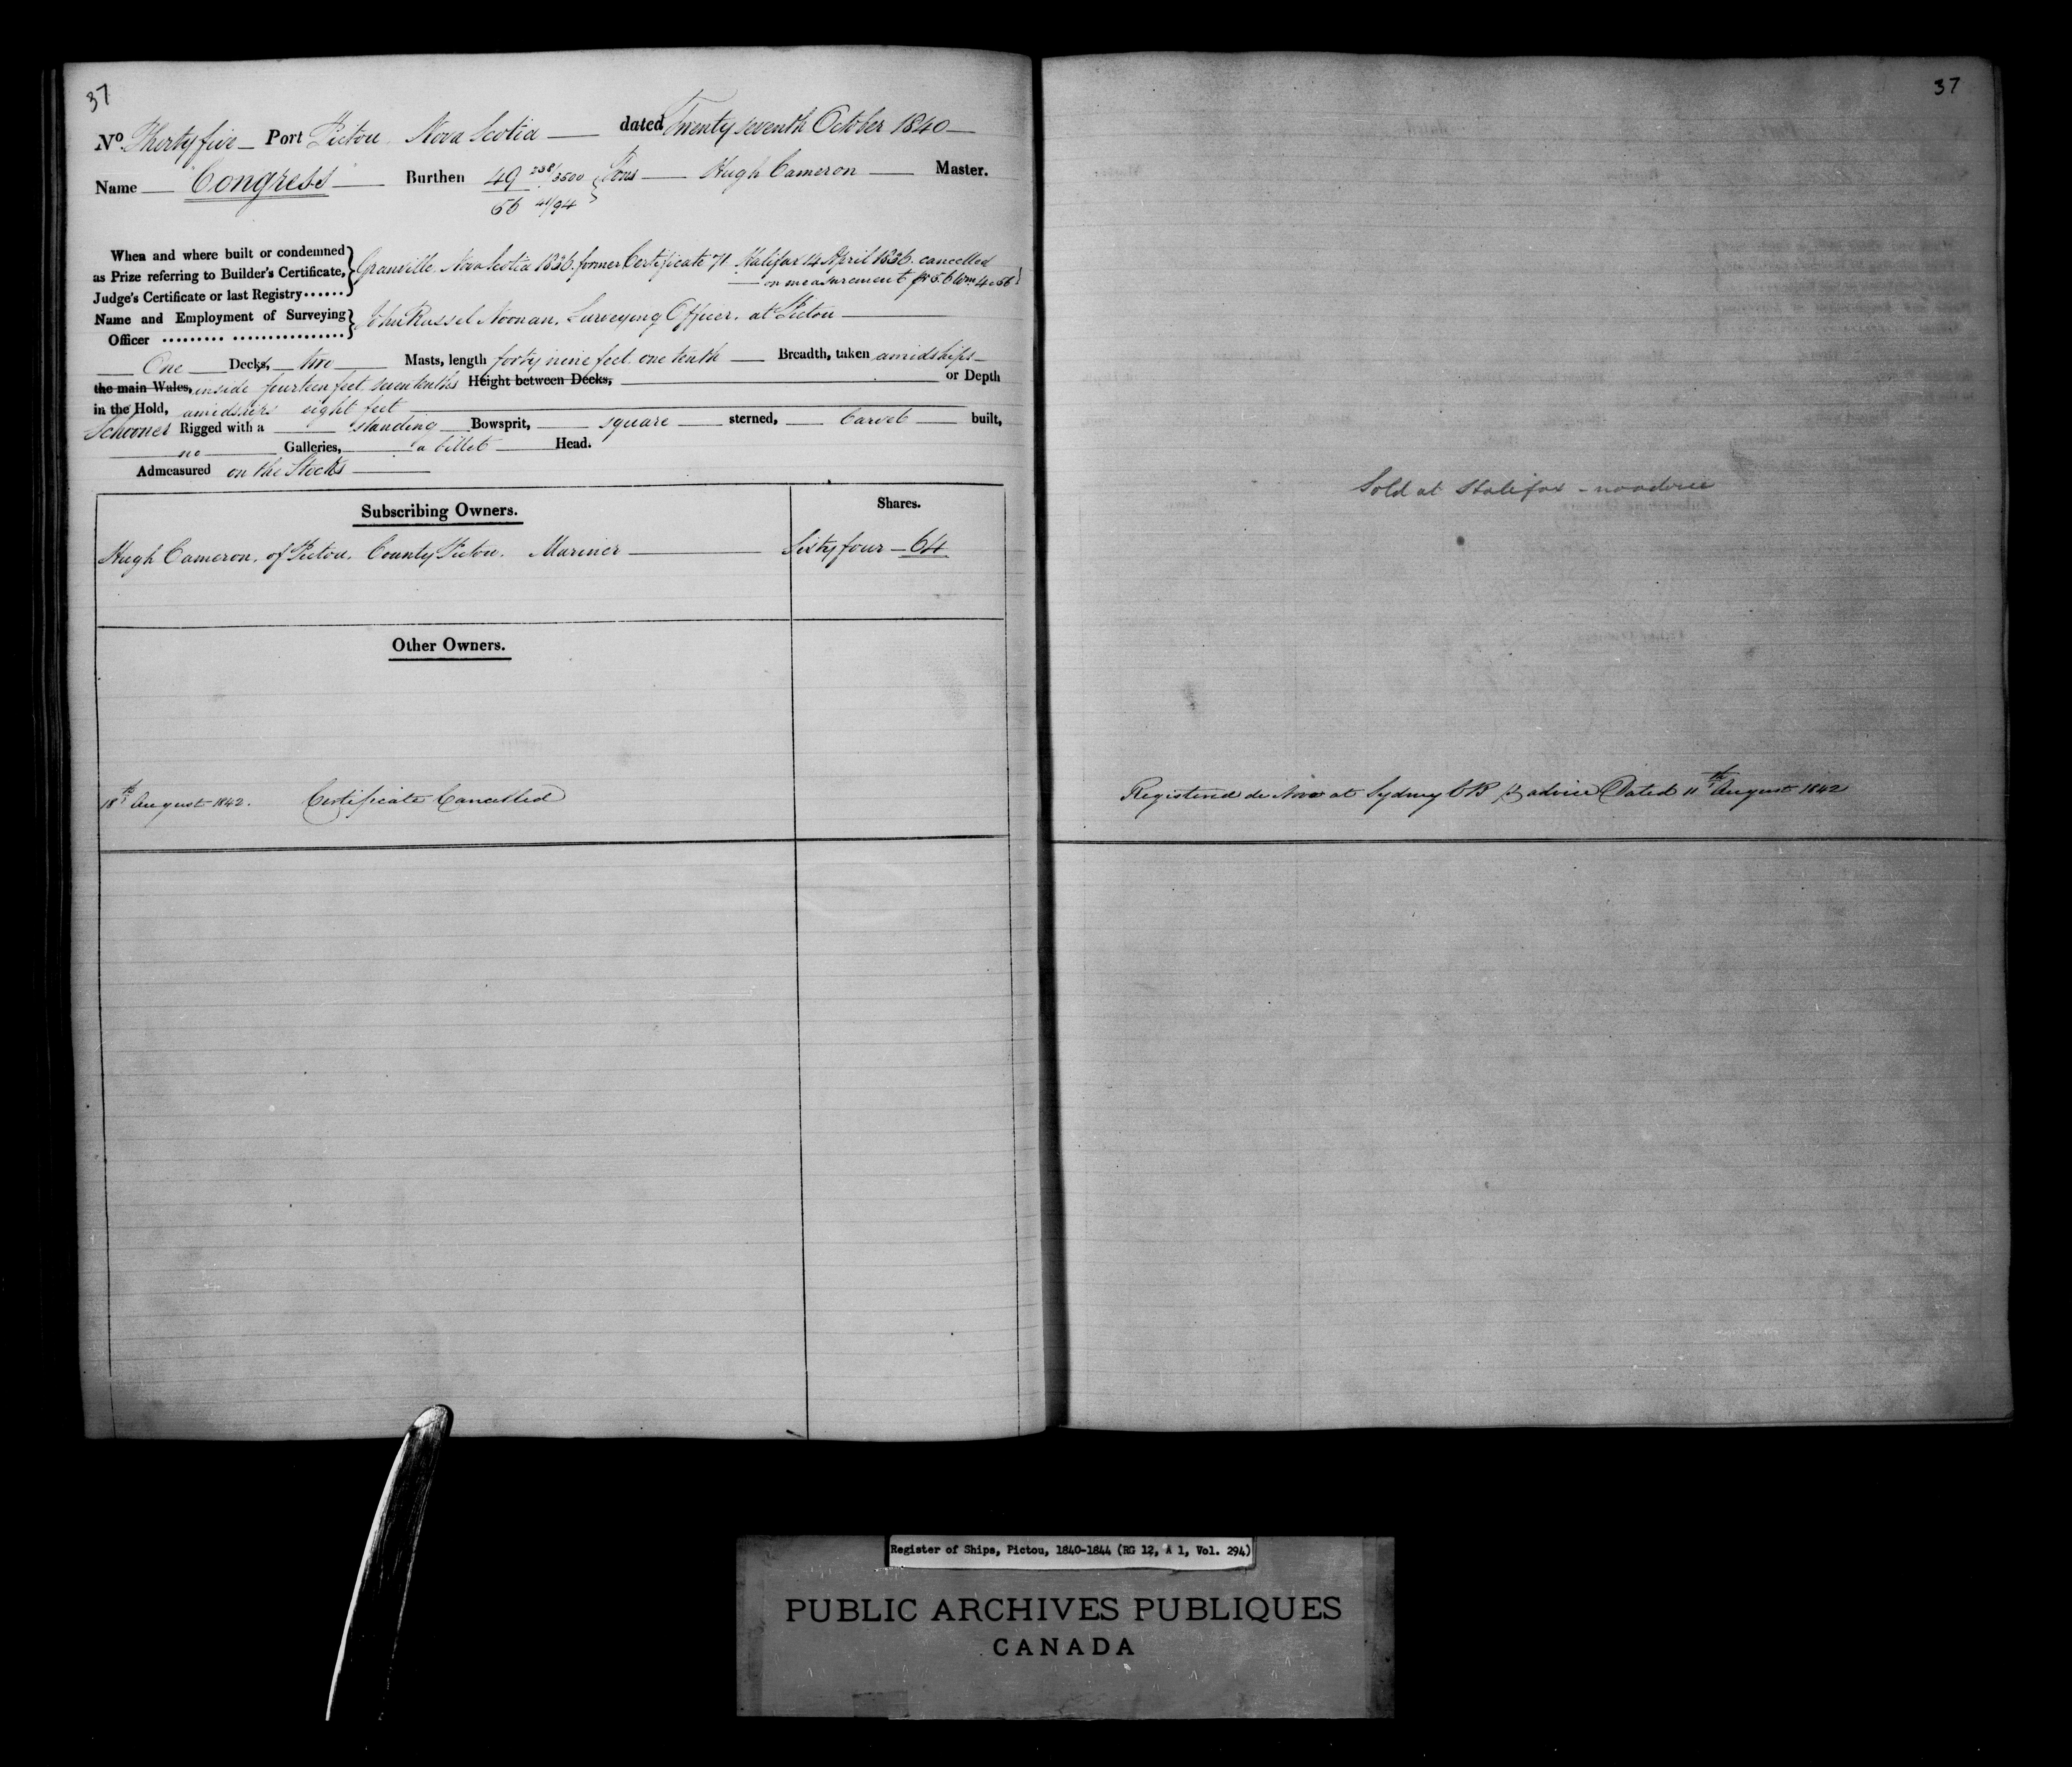 37
No. Thirty five Port Pictou Nova Scotia dated Twenty seventh October 1840
Name Congress Burthen 49 238/3500 Tons Hugh Cameron Master.
56 41/94
When and where built or condemned as Prize referring to Builder's Certificate, Judge's Certificate or last Registry...... Granville Nova Scotia 1836. former Certificate 71 Halifax 14 April 1836. cancelled
on measurement
Name and Employment of Surveying Officer John Russel Noonan, Surveying Officer, at Pictou
One Decks, two Masts, length forty nine feet one tenth Breadth, taken amidships
the main Wales, inside fourteen feet seven tenths Height between Decks, or Depth
in the Hold, amidships eight feet
Schooner Rigged with a standing Bowsprit, square sterned, Carvel built,
no Galleries, a billet Head.
Admeasured on the Stocks
Subscribing Owners. Shares.
Hugh Cameron, of Pictou, County Pictou. Mariner Sixty four 64
Other Owners.
18th August 1842. Certificate Cancelled
37
Sold at Halifax - no advice
Registered de Novo at Sydney CB p advice Dated 11th August 1842
Register of Ships, Pictou, 1840-1844 (RG 12, A 1, Vol. 294)
PUBLIC ARCHIVES PUBLIQUES
CANADA